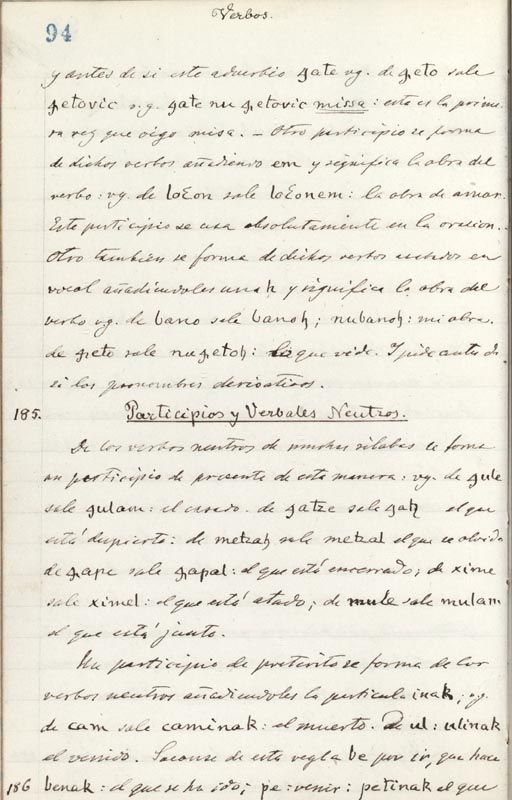 Verbos.
94
y antes de si este adverbio gate vg. de geto sale
getovic v.g. gate nu getovic missa: esta es la prime
ra vez que oigo misa. - Otro participio se forma
de dichos verbos añadiendo em y significa la obra del
verbo: vg. de loƐon sale loƐonem: la obra de amar.
Este participio se usa absolutamente en la oracion.
Otro tambien se forma de dichos verbos acabados en
vocal añadiendoles una h y significa la obra del
verbo vg. de bano sale banoh; nubanoh: mi obra.
de geto sale nugetoh: lo que vide. Y pide antes de
si los pronombres derivativos.
185. Participios y Verbales Neutros.
De los verbos neutros de muchas silabas se forma
un participio de presente de esta manera: vg. de gule
sale gulam: el casado. de gatze sale gatz el que
está despierto: de metzah sale metzal el que se olvida
de gape sale gapal: el que está encerrado; de xime
sale ximel: el que está atado; de mule sale mulam
el que está junto.
Un participio de preterito se forma de los
verbos neutros añadiendoles la particula inak; vg.
de cam sale caminak: el muerto. De ul: ulinak
el venido. Sacanse de esta regla be por ir, que hace
186 benak: el que se ha ido; pe: venir: petinak el que